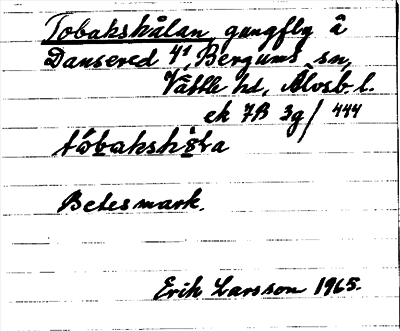 Tobakskålan, gungfly å
Dansered 4¹, Bergums sn,
Vättle hd, Älvsb l.
ek 7B 3g/444
tóbakskå̀la
Betesmark.
Erik Larsson 1965.